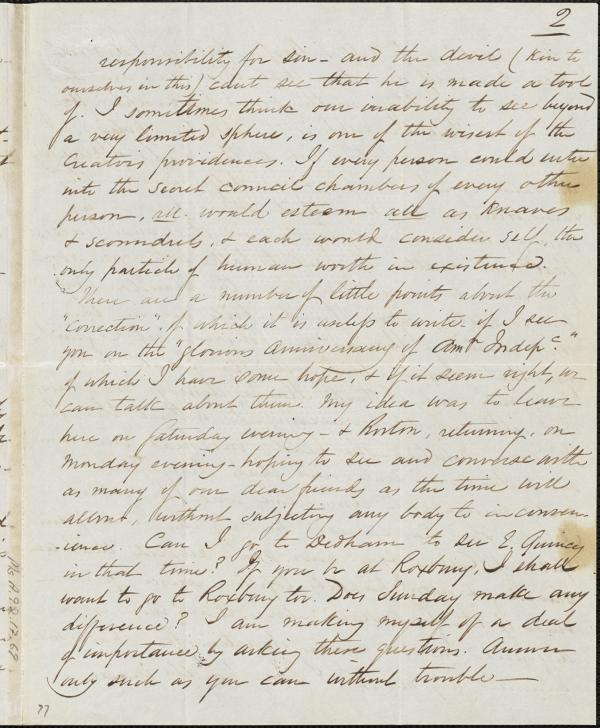 2
responsibility for sin - and the devil (kin to
ourselves in this) cant see that he is made a tool
of. I sometimes think our inability to see beyond
a very limited sphere, is one of the wisest of the
Creators providences. If every person could enter
into the secret council chambers of every other
person, all would esteem all as Knaves
& scoundrels, & each would consider self, the
only particle of human worth in existence.
There are a number of little points about the
"Correction" of which it is useless to write. if I see
you on the "glorious anniversary of Amn Indepc."
of which I have some hope, & if it seem right, we
can talk about them. My idea was to leave
here on Saturday evening - & Boston, returning, on
Monday evening - hoping to see and converse with
as many of our dear friends as the time will
allow, without subjecting any body to inconven-
ience. Can I go to Dedham to see E. Quincy
in that time? If you be at Roxbury, I shall
want to go to Roxbury too. Does Sunday make any
difference? I am making myself of a deal
of importance by asking these questions. Answer
only such as you can without trouble —
77